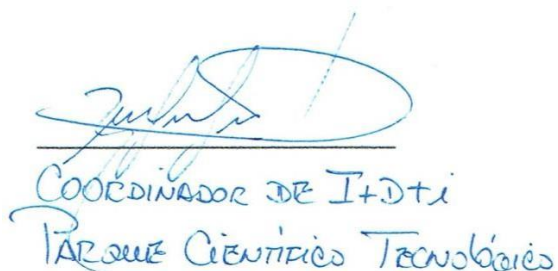 COORDINADOR DE I+D+i
PARQUE CIENTÍFICO TECNOLÓGICO